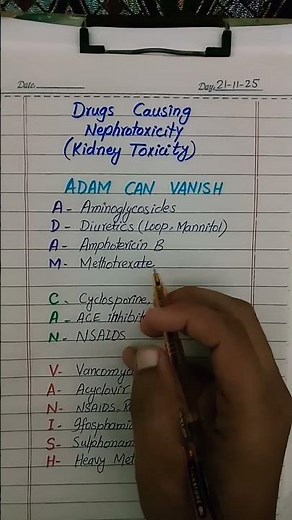 Date
Day 21-11-25
Drugs Causing
Nephrotoxicity
(Kidney Toxicity)
ADAM CAN VANISH
A- Aminoglycosides
D- Diuretics (Loop, Mannitol)
A- Amphotericin B
M- Methotrexate
C- Cyclosporine,
A- ACE inhibit
N- NSAIDS
V- Vancomyc
A- Acyclovir
N- NSAIDS,
I- Ifosphami
S- Sulphonam
H- Heavy Met